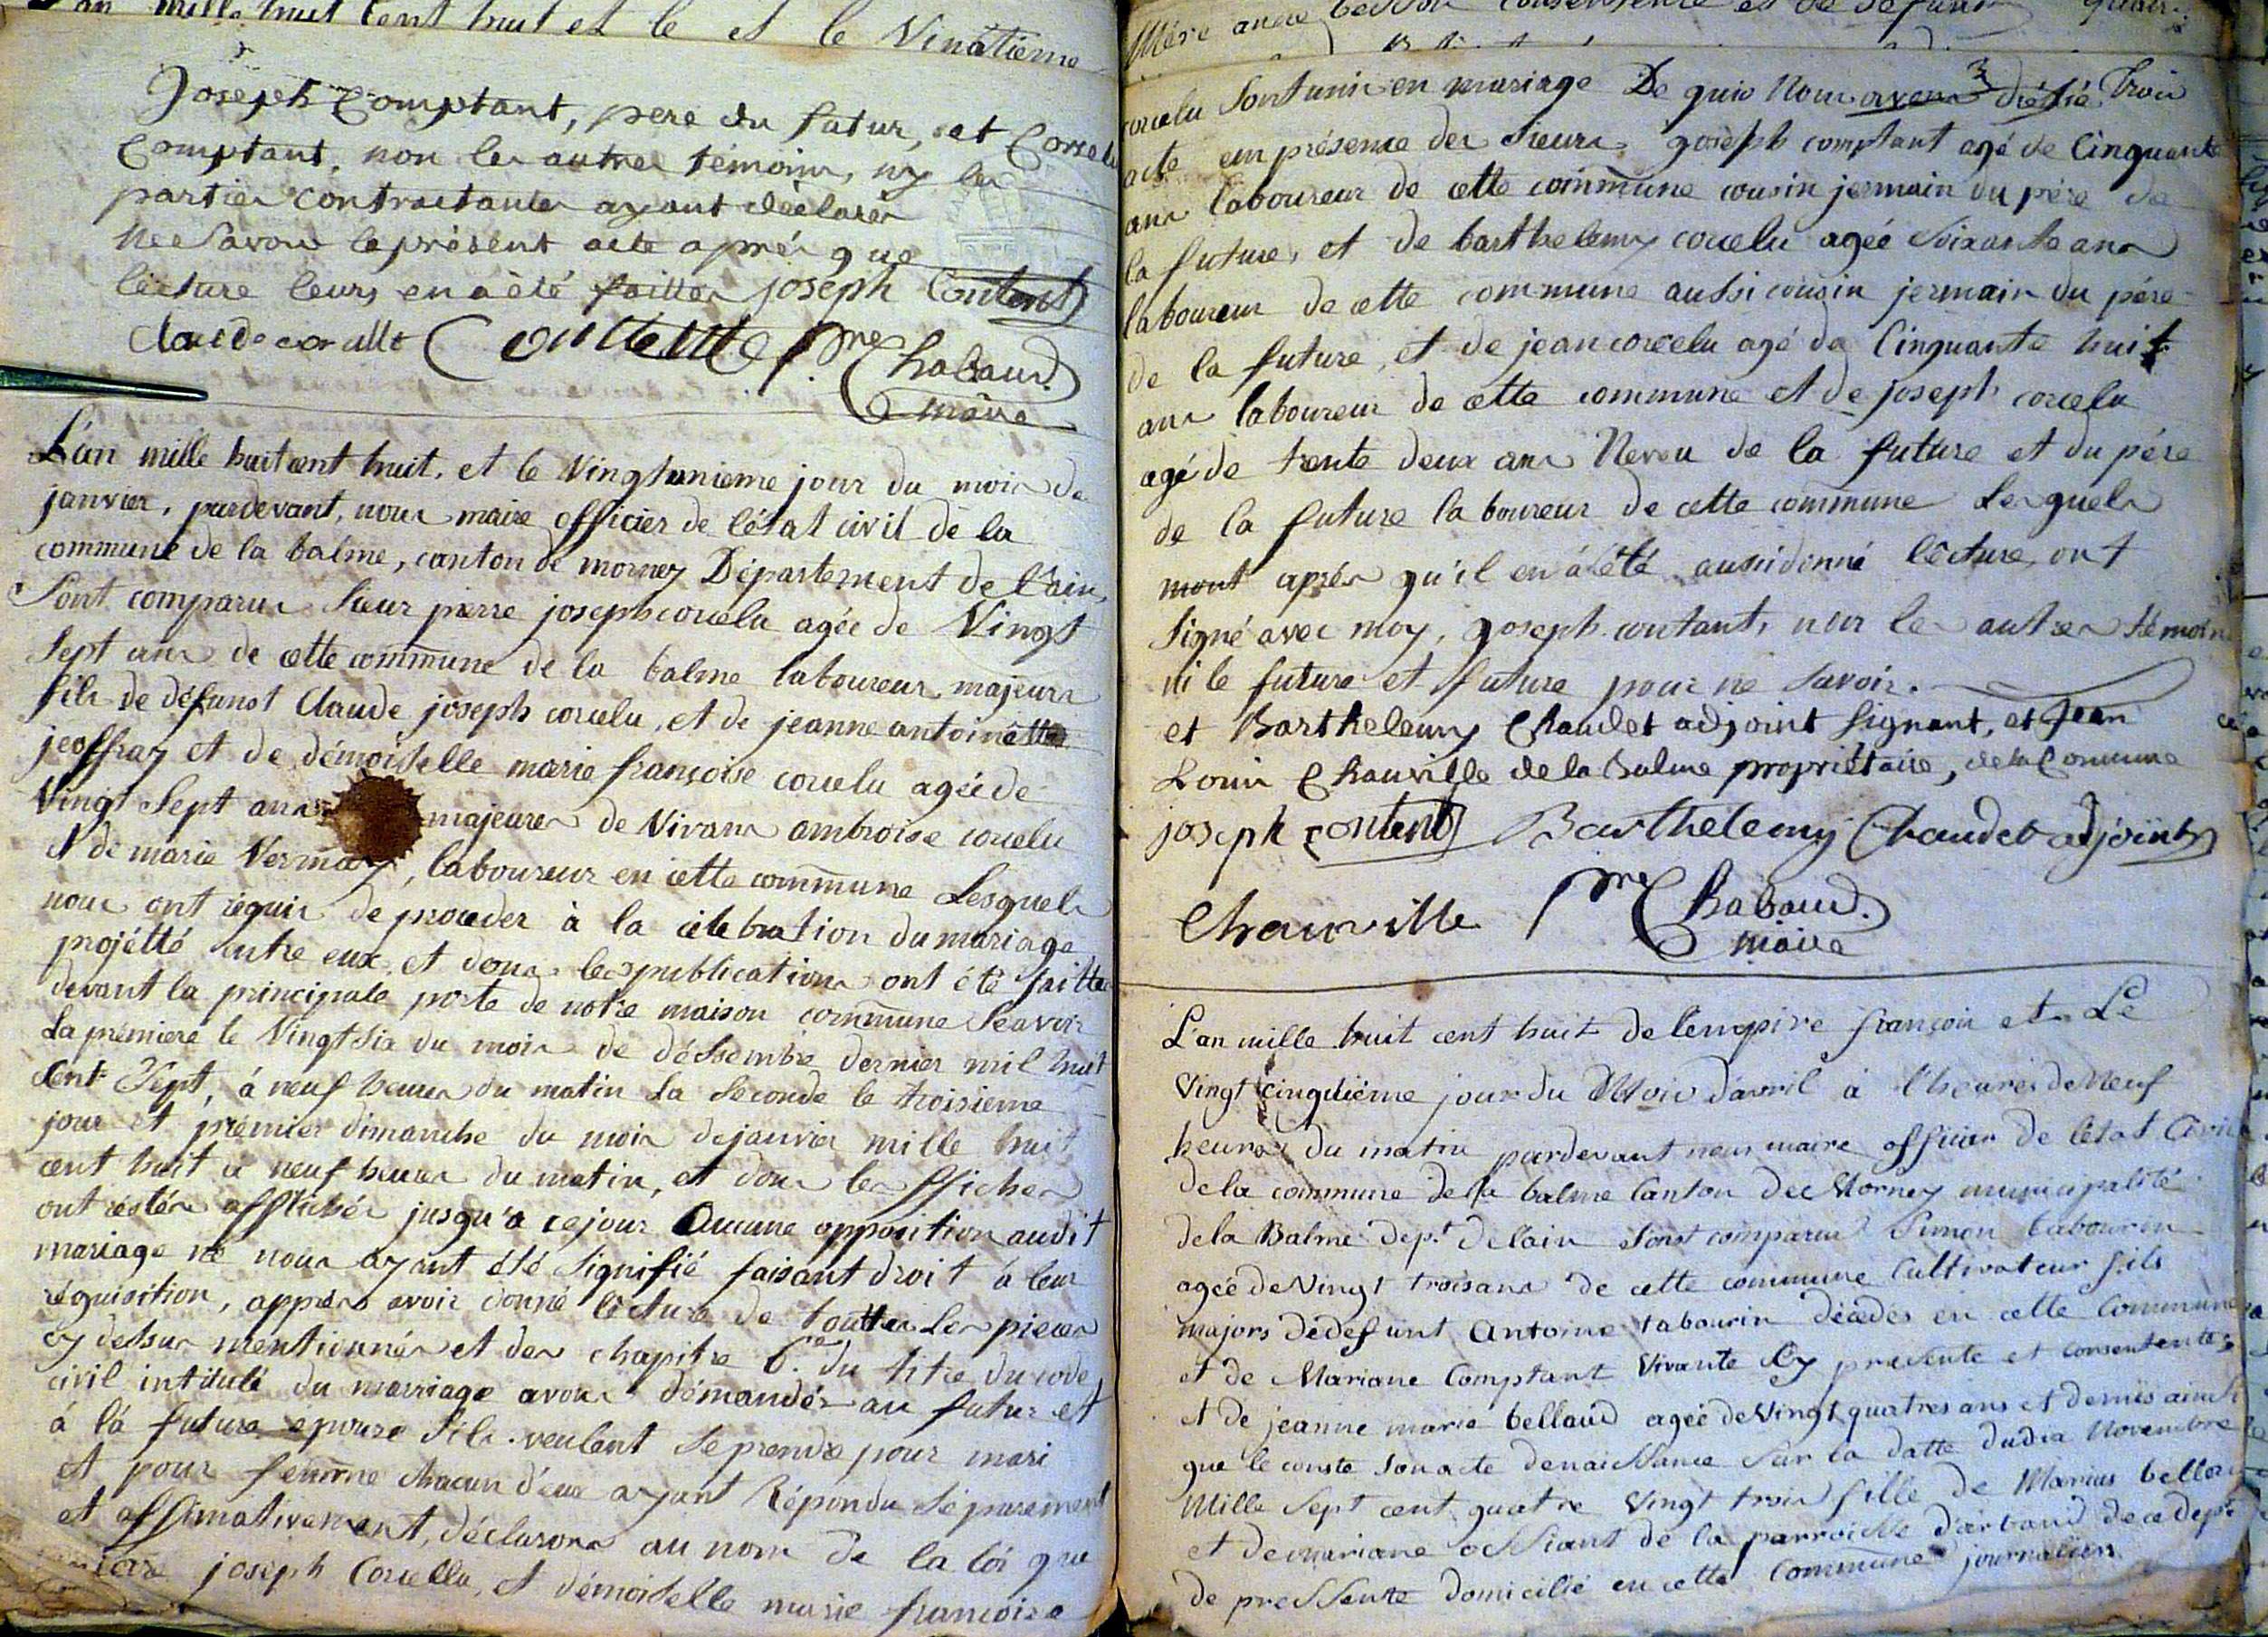 mille huit Cent huit et le et le Vingtieme
Joseph Comptant, pere du futur, et Corcelu
Comptant, non les autres témoins, ny les
parties contractantes ayant déclarés
ne savoir le présent acte aprés que
lécture leurs en à été faitte joseph Contant
Claude corcelle Couttette pre Chabaud
maire
L'an mille huit cent huit, et le Vingtunieme jour du mois de
janvier, pardevant, nous maire officier de l'état civil de la
commune de la balme, canton de mornay Département de l'ain,
Sont comparus Sieur pierre joseph corcelu agée de Vingt
Sept ans de cette commune de la balme laboureur, majeurs
fils de défunct Claude joseph corcelu, et de jeanne antoinette
jeoffray et de démoiselle marie françoise corcelu agée de
Vingt Sept ans majeures de Vivans ambroise corcelu
et de marie Vermay, laboureur en cette commune Lesquels
nous ont réquis de proceder à la célébration du mariage
projétté entre eux, et dons les publications ont été faittes
devant la principale porte de notre maison commune Scavoir
La première le Vingt six du mois de déssembre dernier mil huit
cent Sept, à neuf heures du matin La Seconde le troisieme
jour et prémier dimanche du mois de janvier mille huit
cent huit à neuf heures du matin, et dons les affiches
ont réstés affichés jusqu'à ce jour Aucune opposition audit
mariage ne nous ayant été Signifié faisant droit à leur
réquisition, apprés avoir donné lécture de touttes Les pieces
cy déssus mentionnés et des chapitre 6.e du titre du code
civil intitulé du marriage avons démandés au futur et
à là future épouse S'ils veulent Se prendre pour mari
et pour femme chacun d'eux ayant Répondu Séparement
et affimativement, déclarons au nom de la loi que
joseph Corcella, et démoiselle marie françoise
Mère
corcelu Sont unis en mariage De quio Nous avons dréssé Trois
acte en présence des Sieurs joseph comptant agé de Cinquante
ans laboureur de cette commune cousin jermain du père de
la future, et de barthelemy corcelu agée Soixante ans
laboureur de cette commune aussi cousin jermain du pére
de la future, et de jean corcelu agé de Cinquante huit
ans laboureur de cette commune et de joseph corcelu
agé de trente deux ans Neveu de la future et du pére
de la future laboureur de cette commune Lesquels
mont aprés qu'il en à été aussi donné lécture, ont
Signé avec moy, joseph contant, non les autres témoins
ni le future et future pour ne Savoir.
et Barthelemy Chaudet adjoint Signant, et Jean
Louis Chauville de la Balme propriétaire, de la Commune
joseph contant Barthelemy Chaudet adjoint
Chauville pre Chabaud
maire
L'an mille huit cent huit de l'empire françois et Le
Vingt cinquiéme jour du Mois d'avril à l'heures de Neuf
heures du matin pardevant nous maire officier de l'état Civil
de la commune de la balme Canton de Mornay municipalité
de la Balme dept. de lain Sont comparus Simon tabourin
agée de Vingt trois ans de cette commune Cultivateur fils
majors de defunt Antoine tabourin décédés en cette Commune
et de Mariane Comptant Vivante Cy presente et consentente
et de jeanne marie bellaud agée de Vingt quatres ans et demis ainsi
que le conste Son acte de naissance Sur la datte du dix Novembre
Mille Sept cent quatre Vingt trois fille de Marcus
et de mariane de la parroisse de ce dept.
de pressente domicilié en cette Commune journaliers